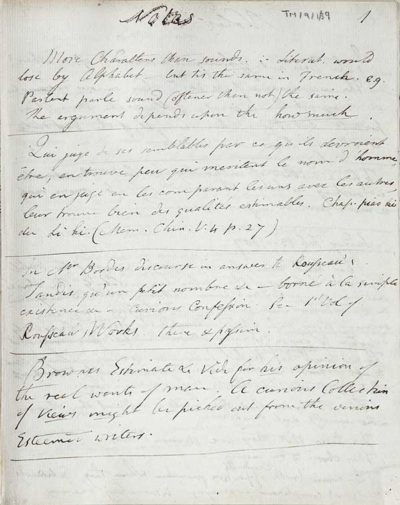 Notes
TM/9/1/89
1
More Characters than sounds. ∴ Literat. would
lose by Alphabet. but tis the same in French. eg.
Parlent parle sound (oftener than not) the same.
The argument depends upon the how much.
Qui juge de ses semblables par ce qu'ils devroient
être, en trouve peu qui meritent le nom d'homme,
qui en juge en les comparant les uns avec les autres,
leur trouve bien des qualités estimables. Chap.
du Li ki. (Mem. Chin. V. 4 p. 27)
In Mr Bordes discourse in answer to Rousseau.
Tandis qu'un petit nombre &c — borné à la simple
existence &c — Curious Confession. 1st Vol of
Rousseau's Works
Browne's Estimate &c Vide for his opinion of
the real wants of man. A curious Collection
of Views might be picked out from the various
Esteemed writers.